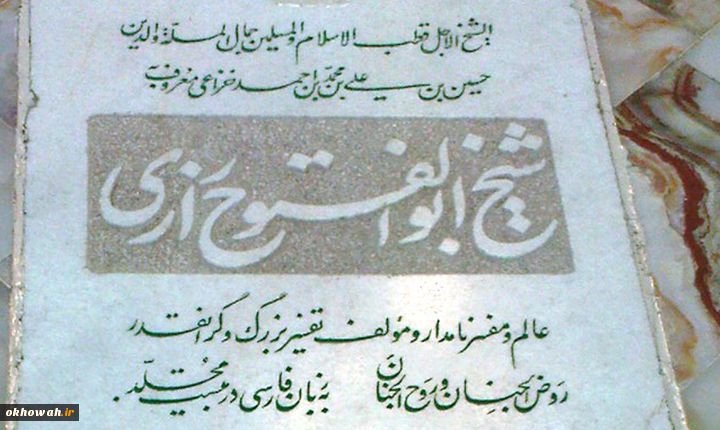 الشیخ الاجل قطب الاسلام والمسلمین جمال الملة والدین
حسین بن علی بن محمد بن احمد خزاعی معروف به
شیخ ابوالفتوح رازی
عالم و مفسر نامدار و مؤلف تفسیر بزرگ و گرانقدر
روض الجنان و روح الجنان به زبان فارسی در بیست مجلد.
okhowah.ir